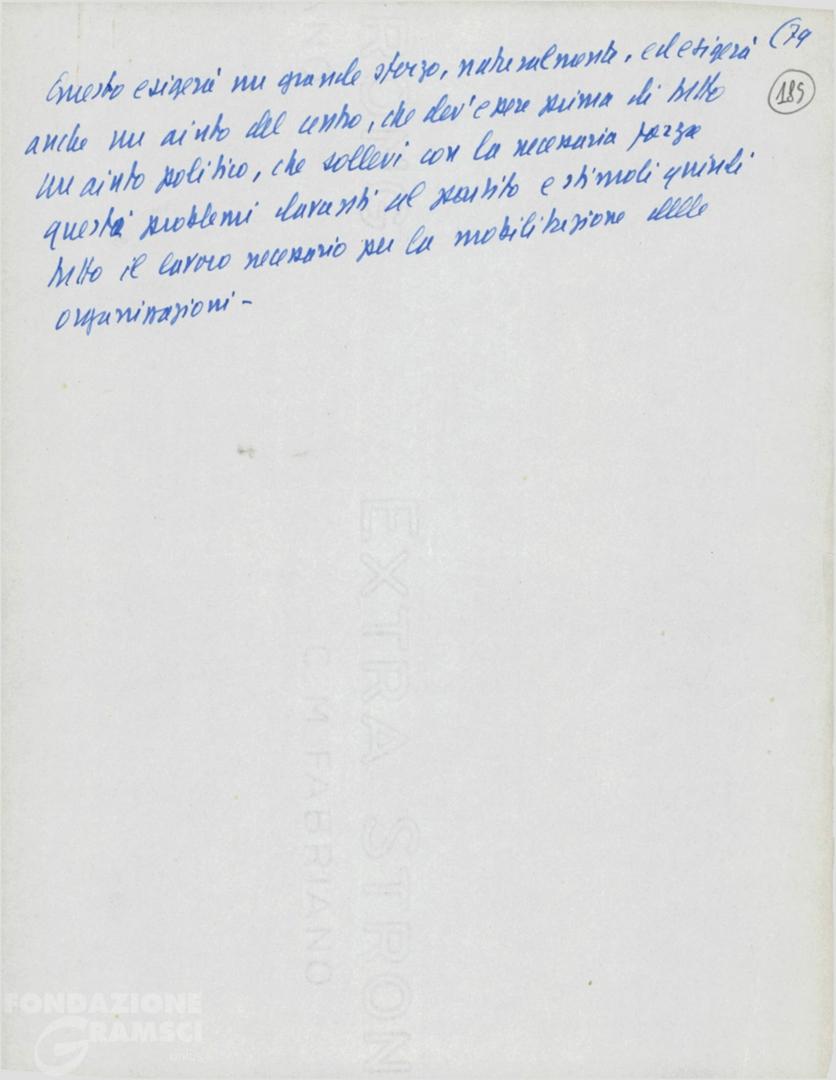 (79
185
Questo esigerà un grande sforzo, naturalmente, ed esigerà
anche un aiuto del centro, che dev'essere prima di tutto
un aiuto politico, che sollevi con la necessaria forza
questi problemi davanti al partito e stimoli quindi
tutto il lavoro necessario per la mobilitazione delle
organizzazioni -
EXTRA STRON
C. M. FABRIANO
FONDAZIONE
GRAMSCI